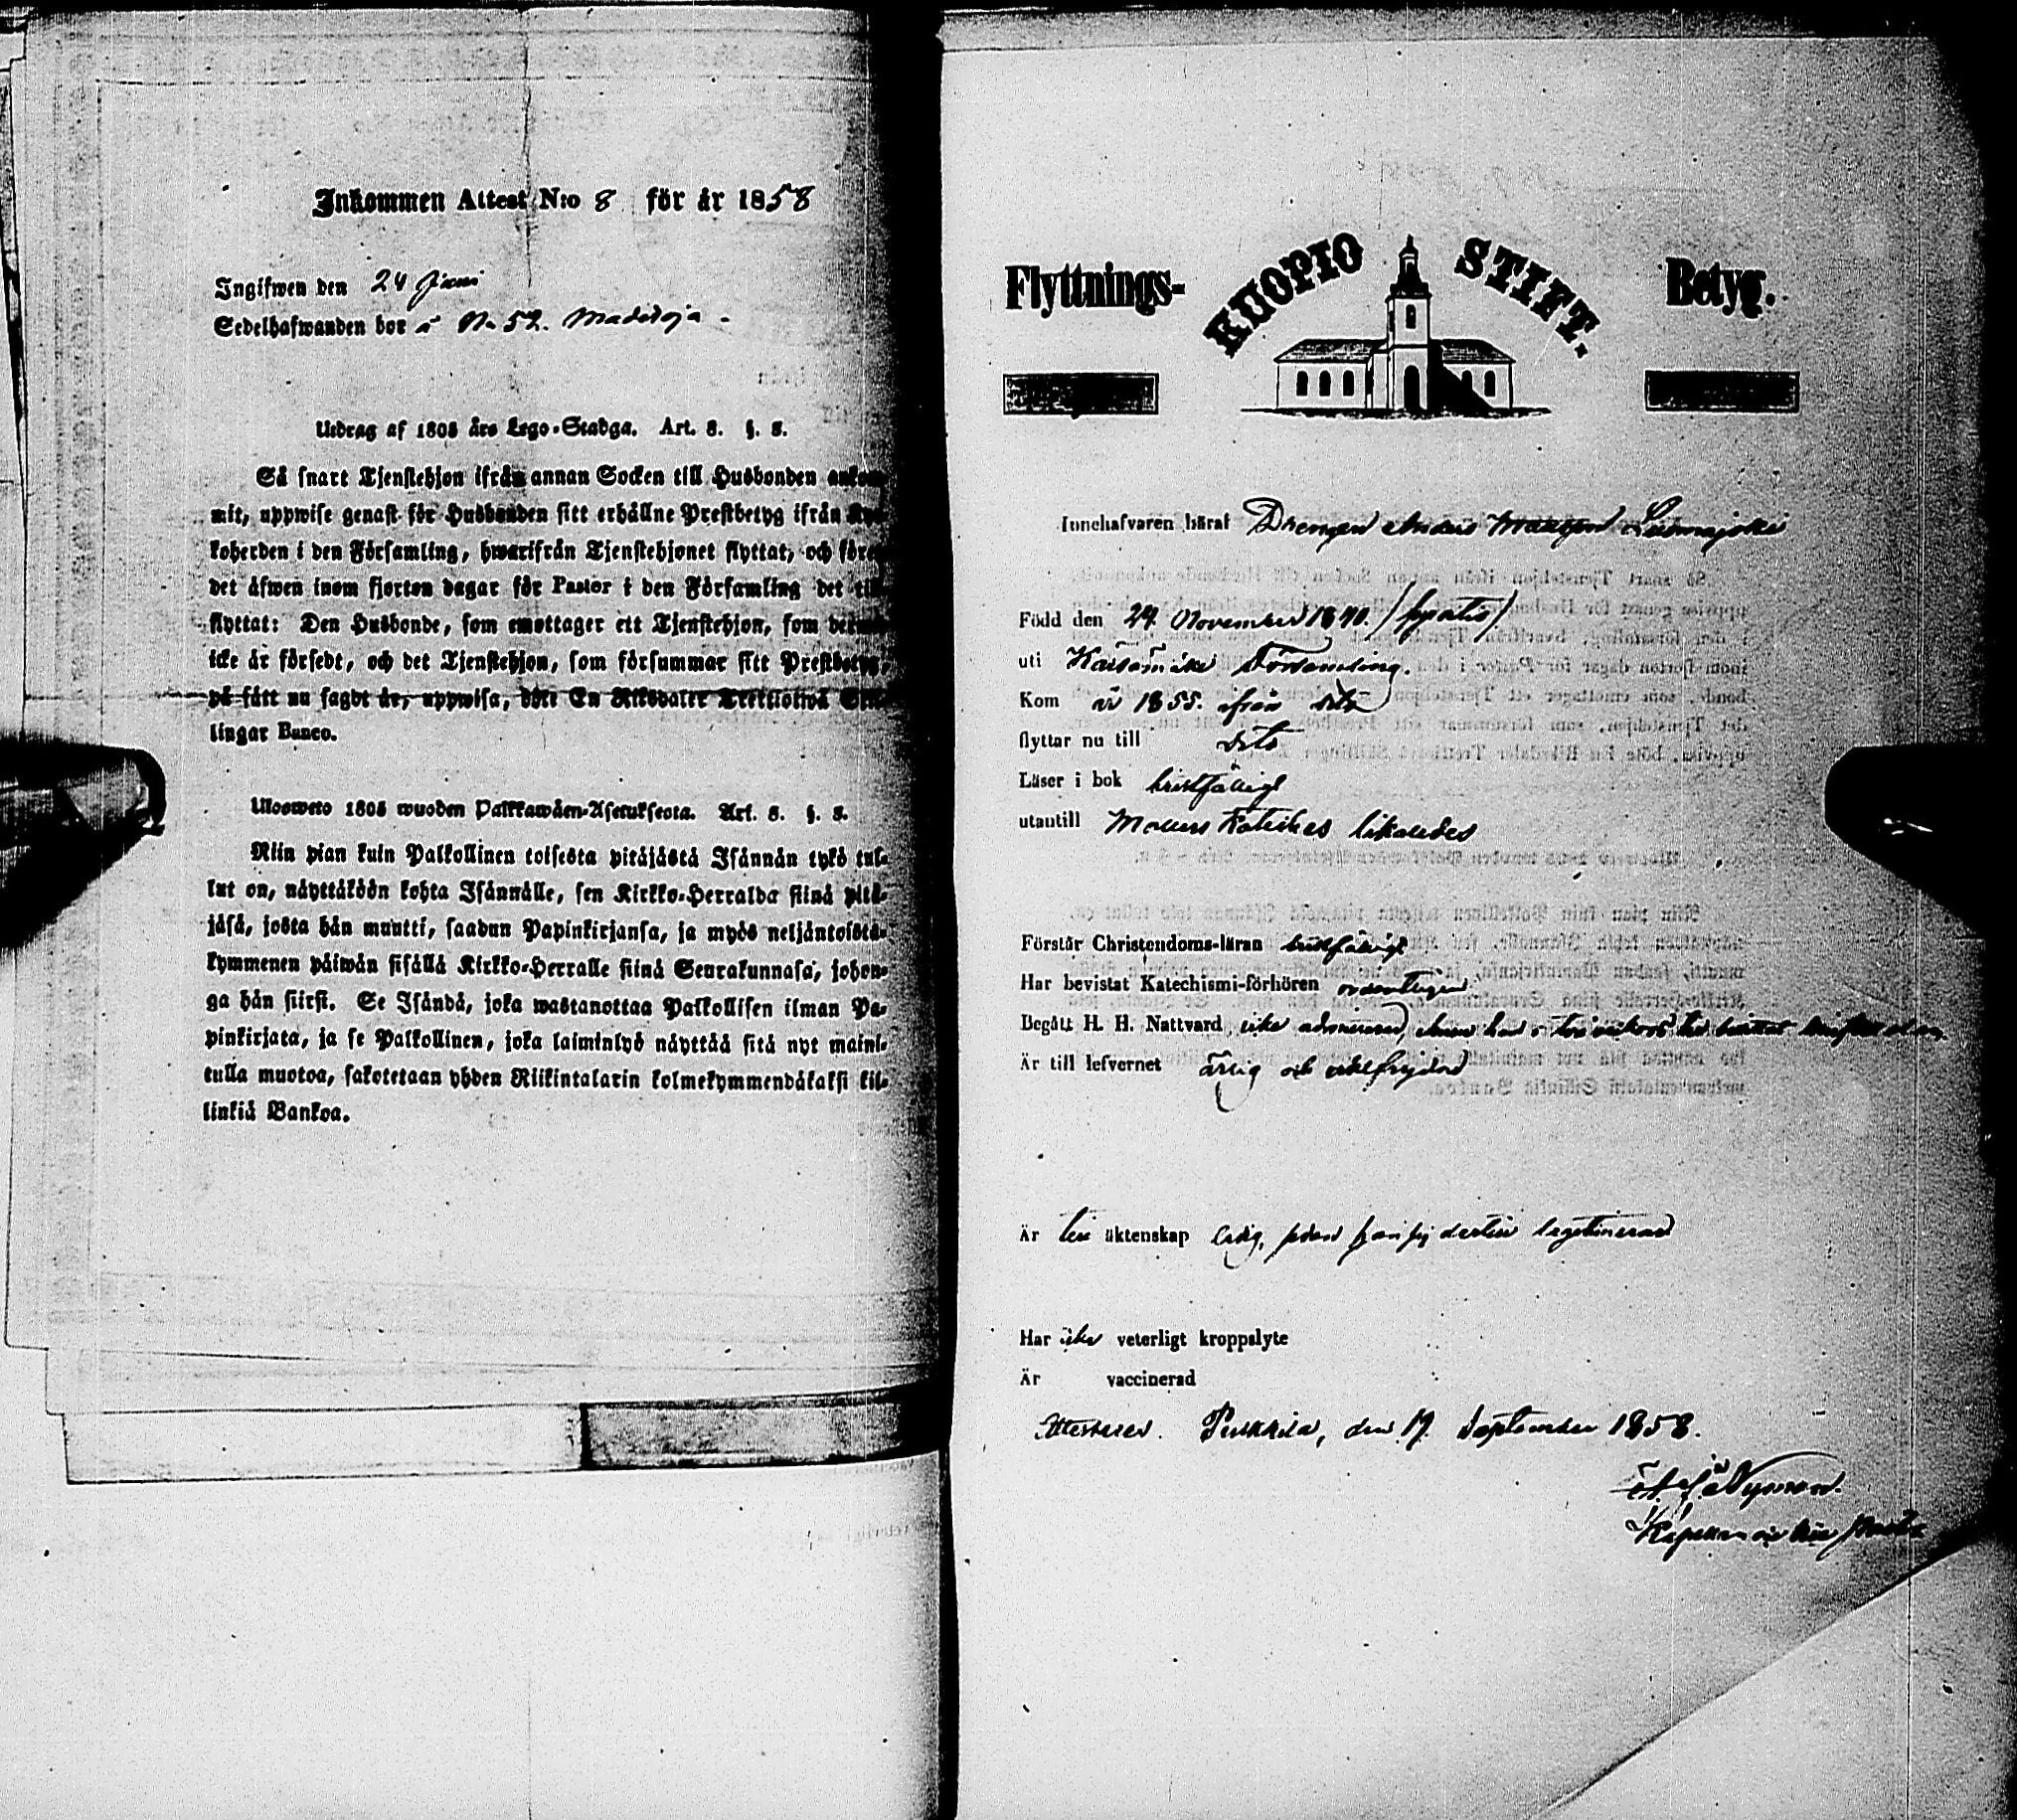 Inkommen Attest N:o 8 för år 1858
Ingifwen den 24 Juni
Sedelhafwanden bor å No 52. Madetoja.
Utdrag af 1805 års Lego-Stadga. Art. 8. §. 8.
Så snart Tjenstehjon ifrån annan Socken till Husbonden ankom-
mit, uppwise genast för Husbonden sitt erhållne Prestbetyg ifrån Kyr-
koherden i den Församling, hwarifrån Tjenstehjonet flyttat, och före
det äfwen inom fjorton dagar för Pastor i den Församling det till-
flyttat: Den Husbonde, som emottager ett Tjenstehjon, som dermed
icke är försedt, och det Tjenstehjon, som försummar sitt Prestbetyg,
på sätt nu sagdt är, uppwisa, böte En Riksdaler Trettiotwå Skil-
lingar Banco.
Ulosweto 1805 wuoden Palkkawäen-Asetuksesta. Art. 8. §. 8.
Niin pian kuin Palkollinen toisesta pitäjästä Isännän tykö tul-
lut on, näyttäköön kohta Isännälle, sen Kirkko-Herralda siinä pitä-
jäsä, josta hän muutti, saadun Papinkirjansa, ja myös neljäntoista-
kymmenen päiwän sisällä Kirkko-Herralle siinä Seurakunnasa, johon-
ga hän siirsi. Se Isändä, joka wastanottaa Palkollisen ilman Pa-
pinkirjata, ja se Palkollinen, joka laiminlyö näyttää sitä nyt maini-
tulla muotoa, sakotetaan yhden Riikintalarin kolmekymmendäkaksi kil-
linkiä Bankoa.
Flyttnings- KUOPIO STIFT. Betyg.
Innehafvaren häraf Drengen Anders
Född den 24. November 1840.
uti Församling.
Kom år 1855. ifrån dito
flyttar nu till dito
Läser i bok bristfälligt
utantill likaledes
Förstår Christendoms-läran bristfälligt
Har bevistat Katechismi-förhören ordentligen
Begått H. H. Nattvard icke admitterad,
Är till lefvernet ärlig och
Är till äktenskap ledig, legitimerad
Har icke veterligt kroppslyte
Är vaccinerad
Attesterar. Pulkkila, den 17. September 1858.
Nyman.